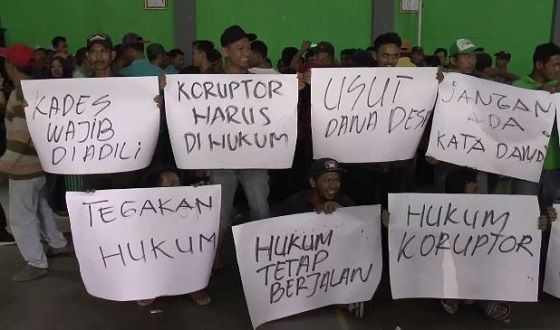 KADES
WAJIB
DIADILI
KORUPTOR
HARUS
DI HUKUM
USUT
DANA DESA
JANGAN
ADA
KATA DAMAI
TEGAKAN
HUKUM
HUKUM
TETAP
BERJALAN
HUKUM
KORUPTOR